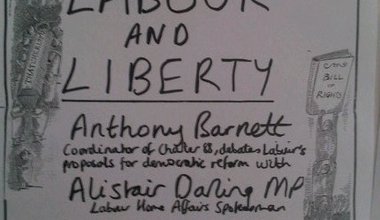 LABOUR
AND
LIBERTY
Anthony Barnett
Coordinator of Charter 88, debates Labour's
proposals for democratic reform with
Alistair Darling MP
Labour Home Affairs Spokesman
BILL
OF
RIGHTS